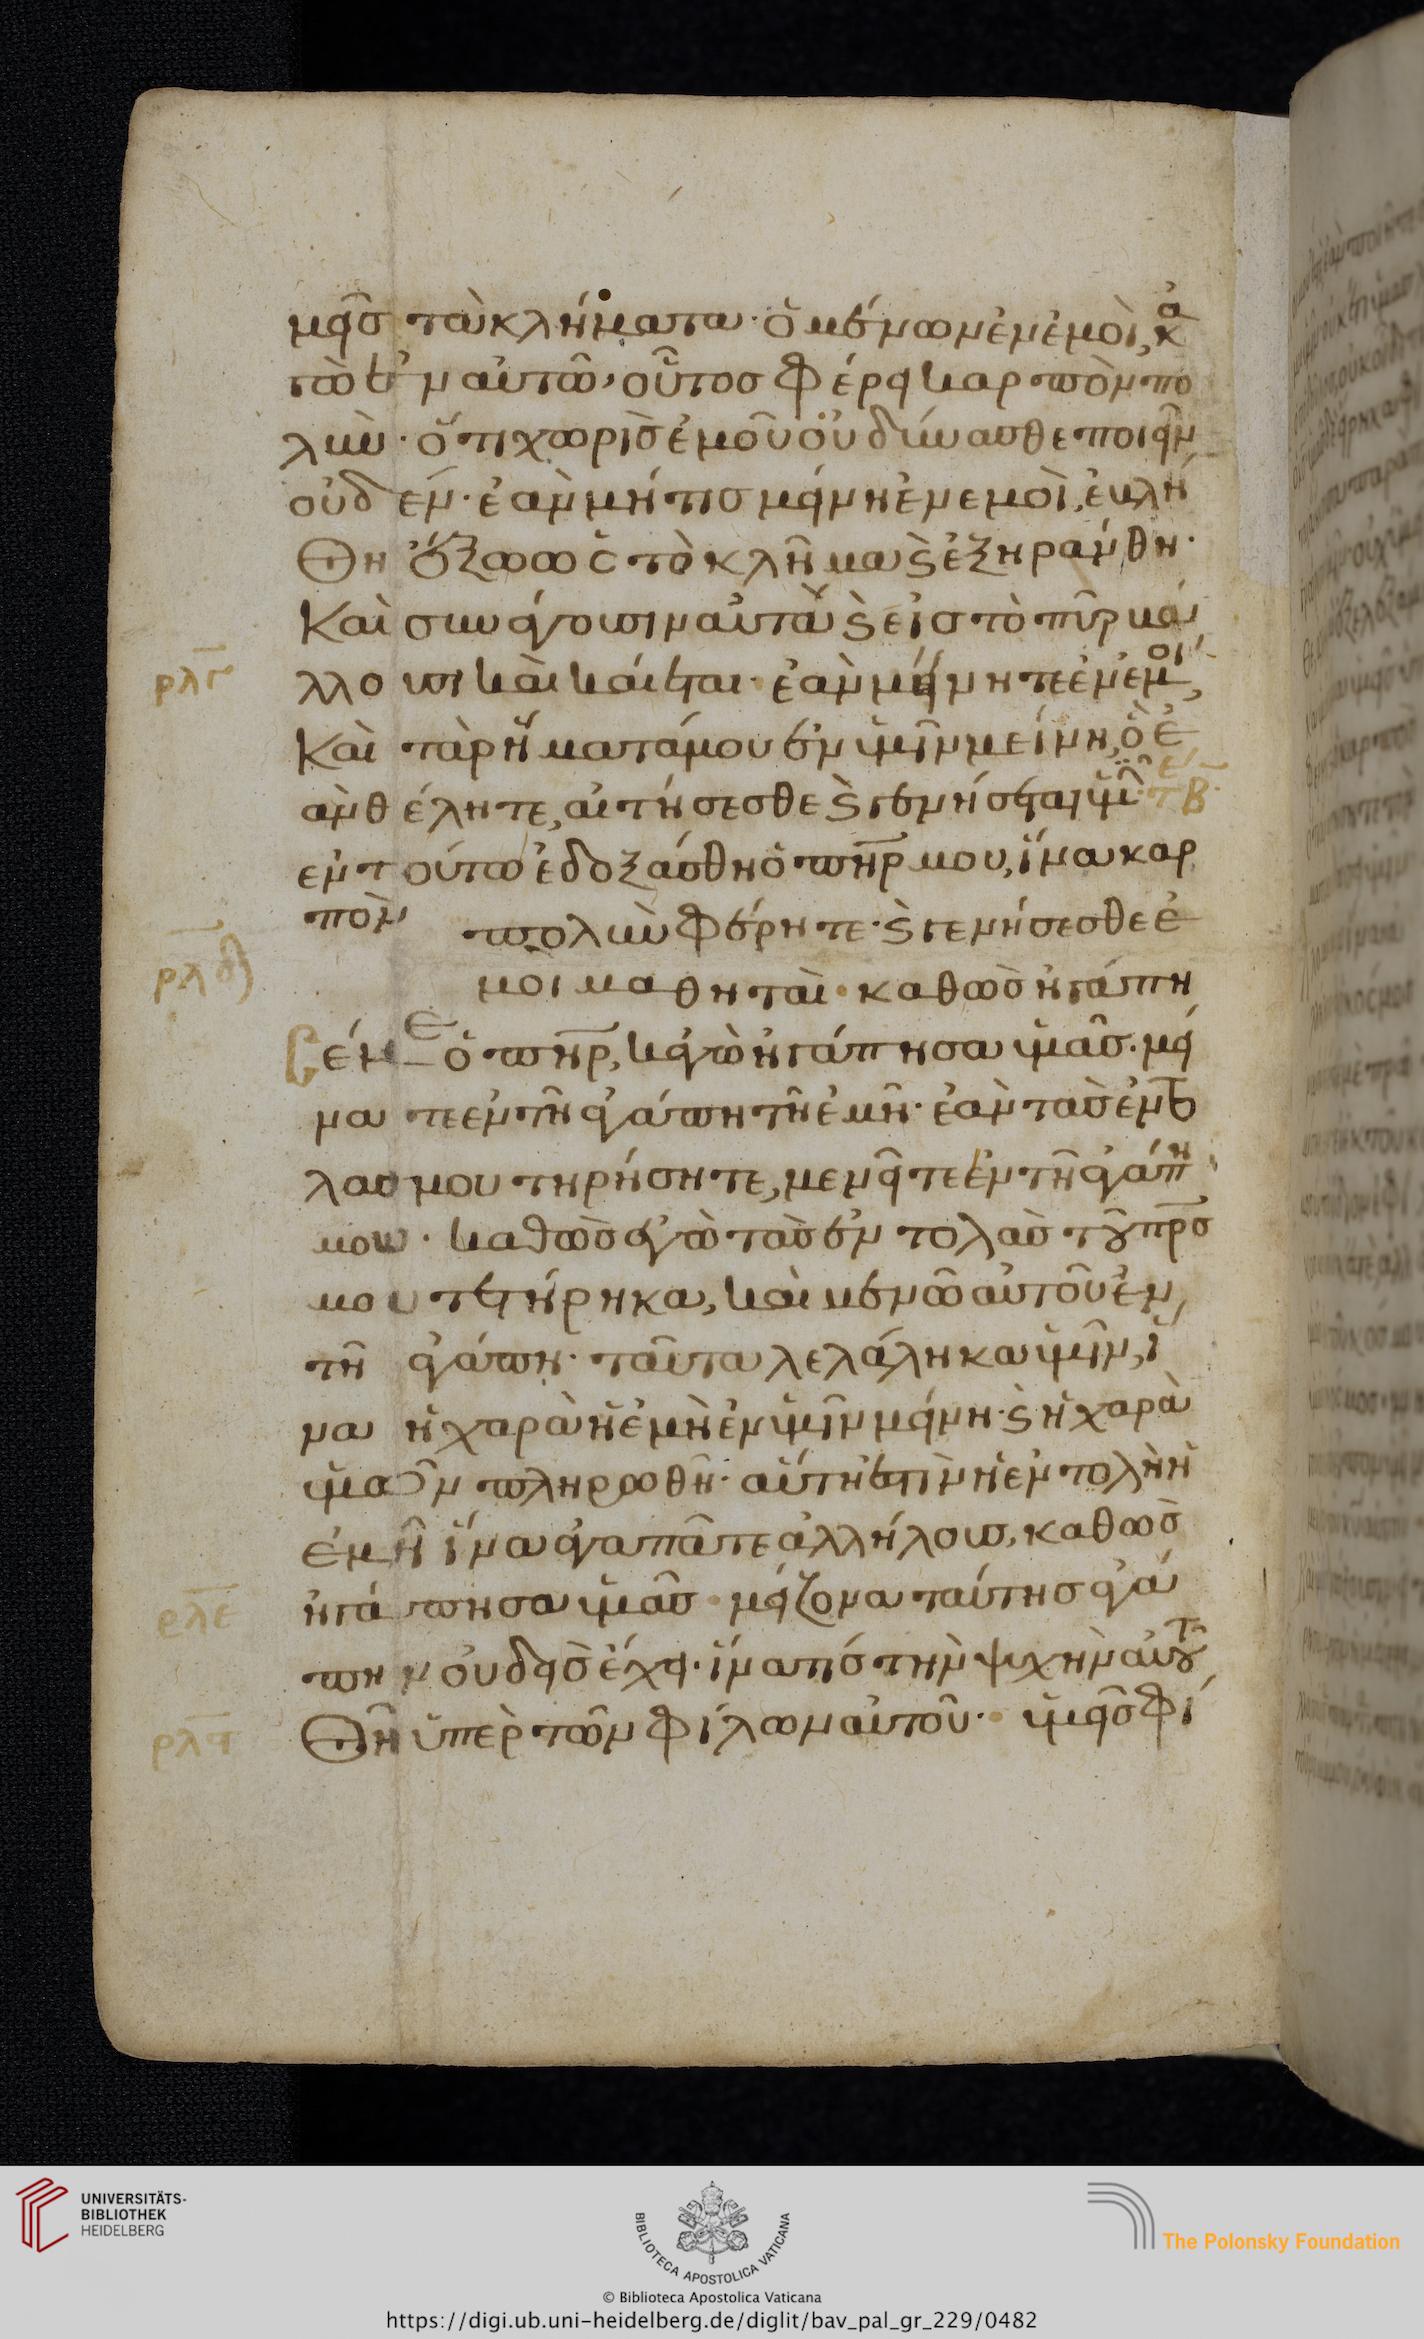 μεῖς τὰ κλήματα· ὁ μένων ἐν ἐμοὶ, κἀ
γὼ ἐν αὐτῶ, οὗτος φέρει καρπὸν πο
λὺν· ὅτι χωρὶς ἐμοῦ οὐ δύνασθε ποιεῖν
οὐδέν· ἐὰν μή τις μείνη ἐν εμοὶ, ἐβλή
θη ἔξω ὡς τὸ κλῆμα ϗ ἐξηράνθη·
Καὶ συνάγουσιν αὐτὰ ϗ εἰς τὸ πῦρ βά
λλουσι καὶ καίεται· ἐὰν μείνητε ἐν ἐμοί,
ρλγ
Καὶ τὰ ρήματά μου ἐν ὑμῖν μείνη, ὃ ἐ
ὰν θέλητε, αἰτήσεσθε ϗ γενήσεται ὑμῖ·
εν τούτω ἐδοξάσθη ὁ πηρ μου, ἵνα καρ
πὸν πολὺν φέρητε· ϗ γενήσεσθε ἐ
ρλδ
μοὶ μαθηταὶ· καθὼς ἠγάπη
σέν με ὁ πηρ, κἀγὼ ἠγάπησα ὑμᾶς· μεί
νατε ἐν τῆ ἀγάπη τῆ ἐμῆ· ἐὰν τὰς ἐντο
λάς μου τηρήσητε, μενεῖτε ἐν τῆ ἀγάπη
μου· καθὼς ἐγὼ τὰς ἐντολὰς τοῦ πρς
μου τετήρηκα, καὶ μένω αὐτοῦ ἐν
τῆ ἀγάπη· ταῦτα λελάληκα ὑμῖν, ἵ
να ἡ χαρὰ ἡ ἐμὴ ἐν ὑμῖν μείνη· ϗ ἡ χαρὰ
ὑμῶν πληρωθῆ· αὕτη ἐστὶν ἡ ἐντολὴ ἡ
ἐμὴ ἵνα ἀγαπᾶτε ἀλλήλους, καθὼς
ἠγάπησα ὑμᾶς· μείζονα ταύτης ἀγά
ρλε
πην οὐδεὶς ἔχει· ἵνα τίς τὴν ψυχὴν αὐτοῦ
θῆ ὑπὲρ τῶν φίλων αὐτοῦ· ὑμεῖς φί
ρλϛ
UNIVERSITÄTS-
BIBLIOTHEK
HEIDELBERG
BIBLIOTECA APOSTOLICA VATICANA
The Polonsky Foundation
© Biblioteca Apostolica Vaticana
https://digi.ub.uni-heidelberg.de/diglit/bav_pal_gr_229/0482